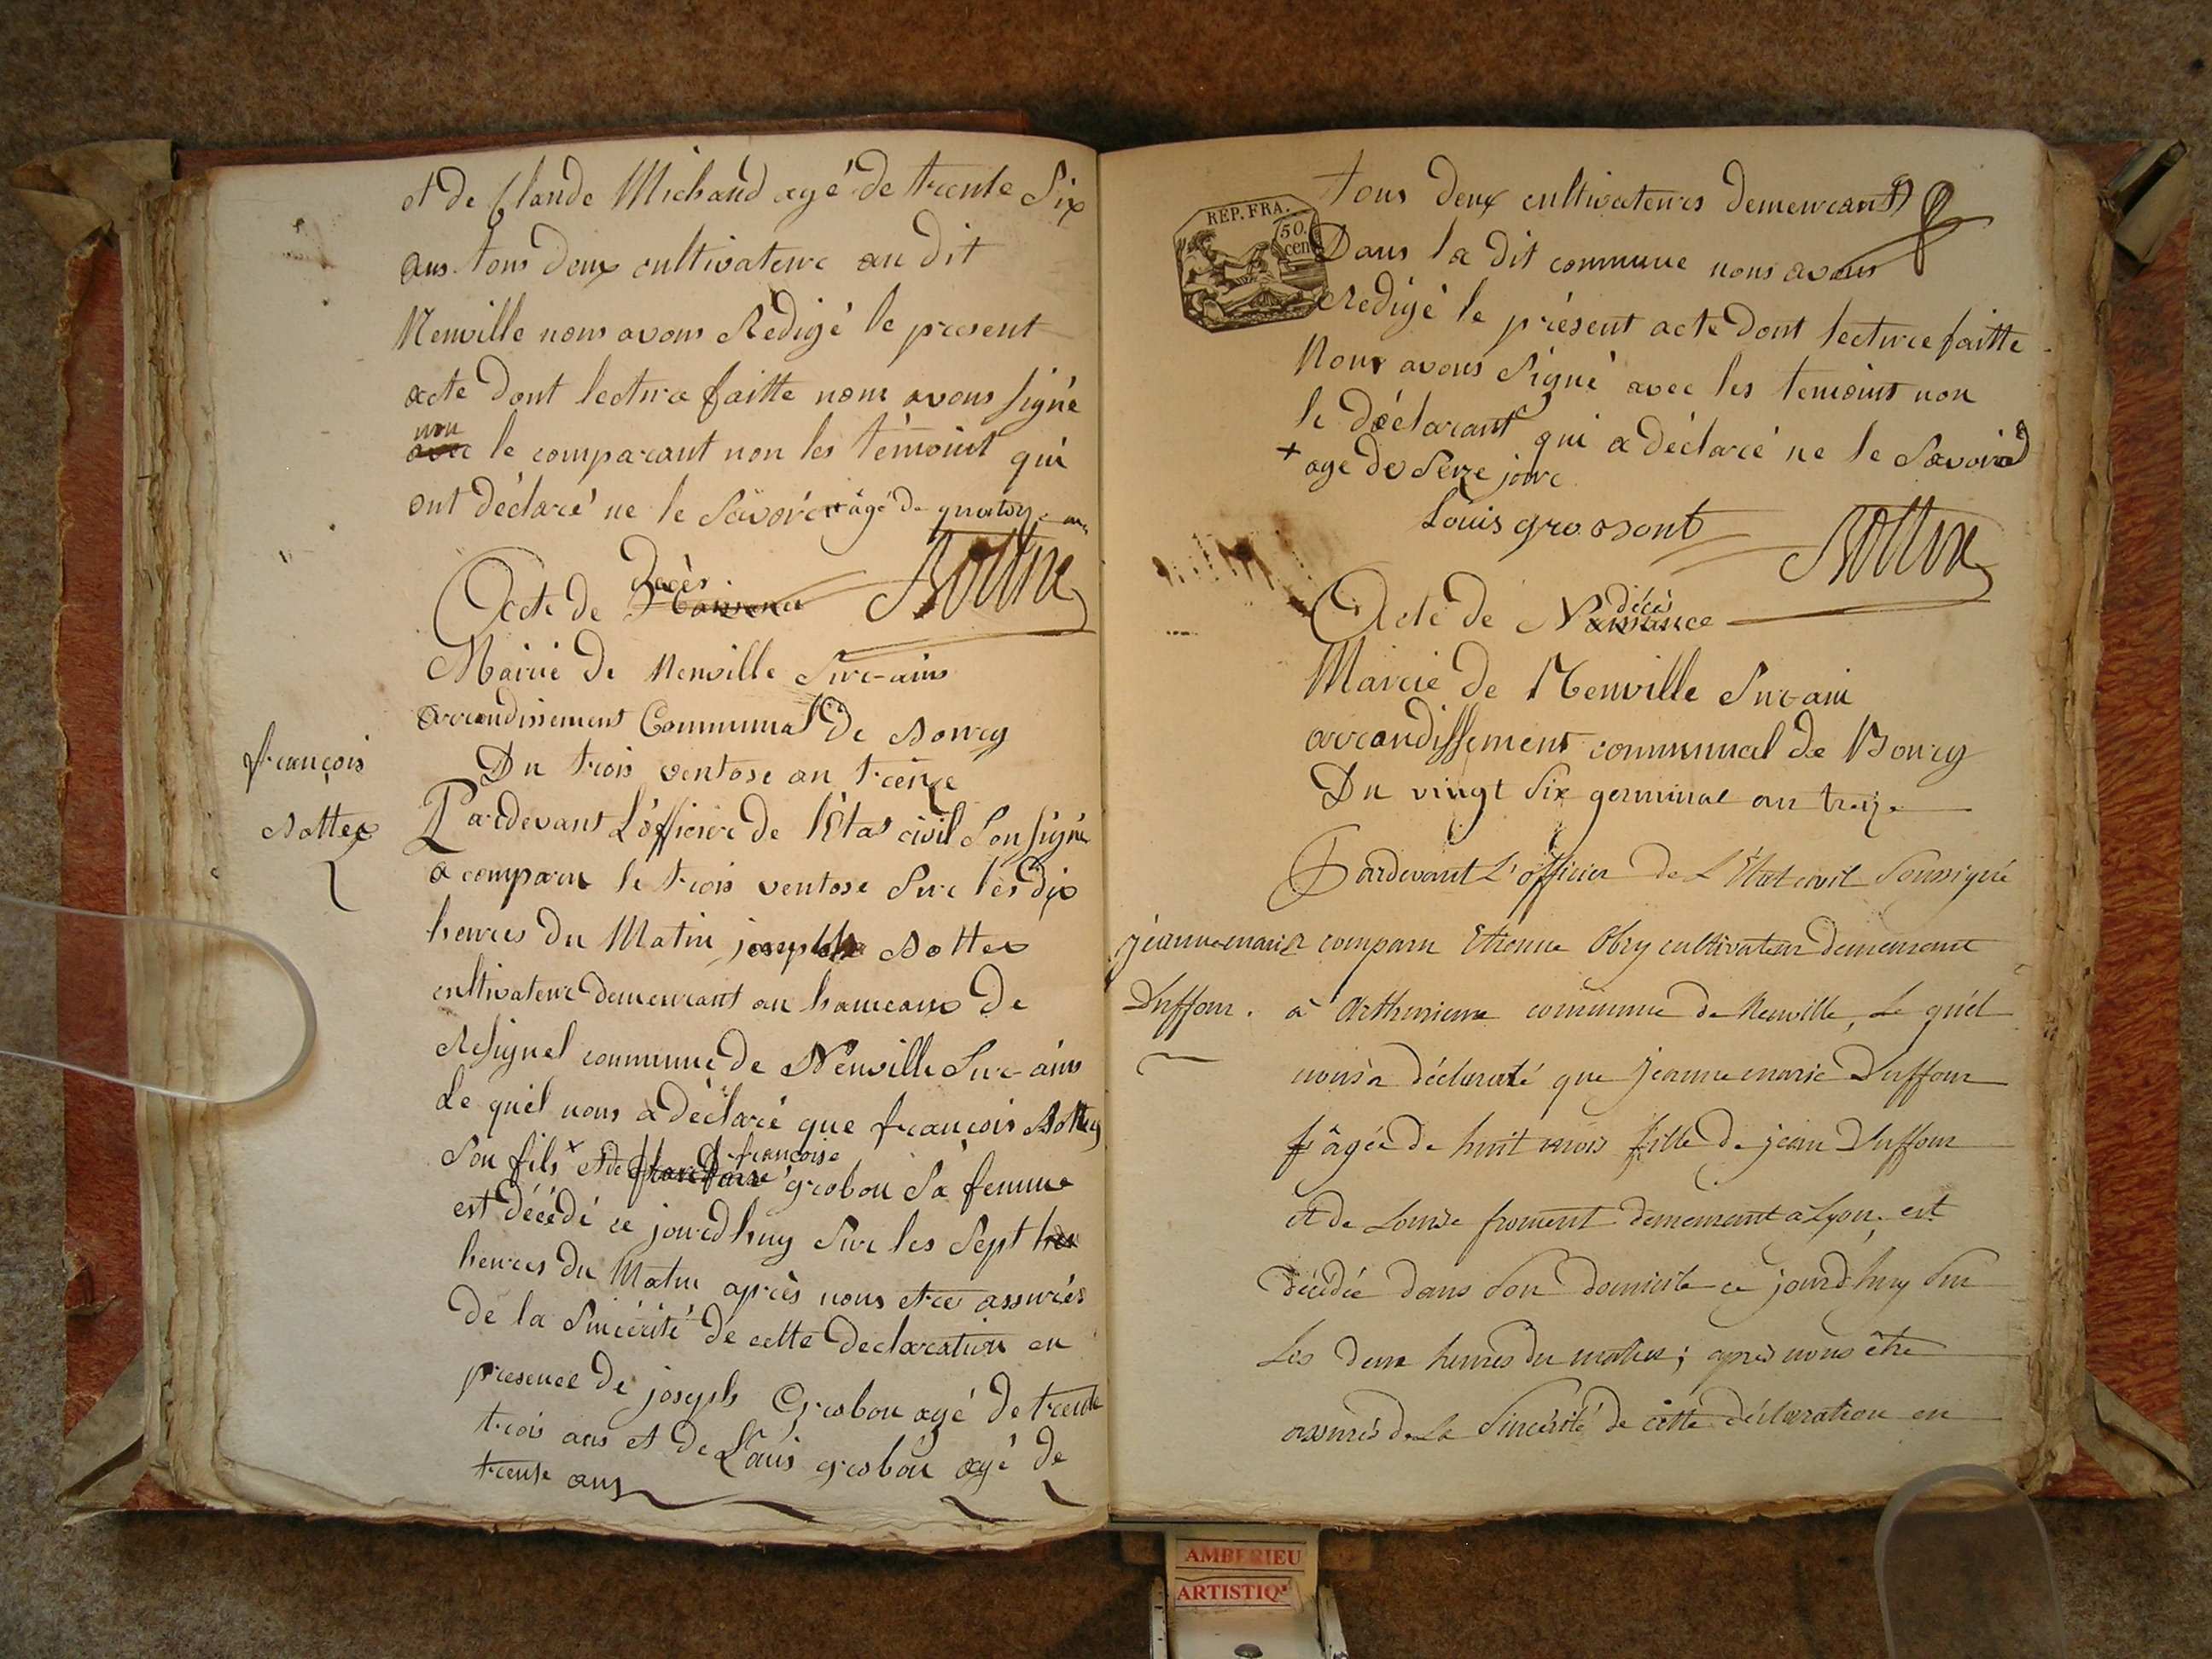 et de Claude Michaud agé de trente Six
ans tous deux cultivateur au dit
Neuville nous avons Redigé le present
acte dont lecture faitte nous avons signé
non
avec le comparant non les témoint qui
ont déclaré ne le Savoir + âgé de quatorze ans
Acte de décès Naissance
Mairie de Neuville Sur-ains
arrondissement Communal de Bourg
Du trois ventose an treize
françois
Bottex
Pardevant L'officier de l'Etat civil Sousigné
a comparu le trois ventose Sur les dix
heures du Matin joseph Bottex
cultivateur demeurant au hameaux de
Resignel commune de Neuville Sur-ains
Le quel nous a déclaré que françois Bottex
Son fils + et de françoise grobou Sa femme
est décédé ce jourdhuy Sur les Sept hes
heures du Matin après nous etre assurés
de la Sincérité de cette declaration en
presence de joseph Grobou agé de trente
trois ans et de Louis grobou agé de
trente ans
REP. FRA.
50.
cen
tous deux cultivateurs demeurant
Dans la dit commune nous avons
Redigé le présent acte dont lecture faitte
Nous avons Signé avec les temoint non
le déclarant qui a déclaré ne le Savoire
+ age de Seize jour
Louis grossont
Acte de décès Naissance
Mairie de Neuville Sur ain
arrondissement communal de Bourg
Du vingt Six germinal an treize
Pardevant L'officier de L'Etat civil Soussigné
jeanne marie
Duffour.
a comparu Etienne Obry cultivateur demeurant
à commune de Neuville, Le quel
nous a déclaré que jeanne marie Duffour
âgée de huit mois fille de jean Duffour
et de Louise froment demeurant à Lyon, est
décédée dans Son domicile ce jourdhuy Sur
Les deux heures du matin; après nous être
assurés de La Sincérité de cette déclaration en
AMBERIEU
ARTISTIQ